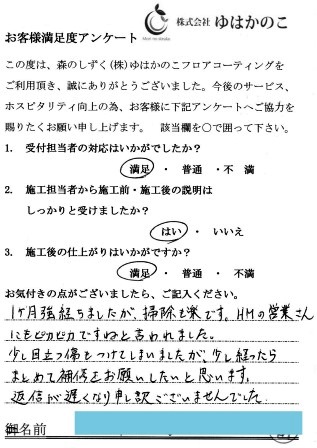 株式会社 ゆはかのこ
お客様満足度アンケート
この度は、森のしずく(株)ゆはかのこフロアコーティングを
ご利用頂き、誠にありがとうございました。今後のサービス、
ホスピタリティ向上の為、お客様に下記アンケートへご協力を
賜りたくお願い申し上げます。 該当欄を○で囲って下さい。
1. 受付担当者の対応はいかがでしたか?
満足 ・ 普通 ・不 満
2. 施工担当者から施工前・施工後の説明は
しっかりと受けましたか?
はい ・ いいえ
3. 施工後の仕上がりはいかがですか?
満足 ・ 普通 ・ 不満
お気付きの点がございましたら、ご記入ください。
1ヶ月強経ちましたが、掃除も楽です。HMの営業さん
にもピカピカですねと言われました。
少し目立つ傷をつけてしまいましたが、少し経ったら
まとめて補修をお願いしたいと思います。
返信が遅くなり申し訳ございませんでした。
御名前